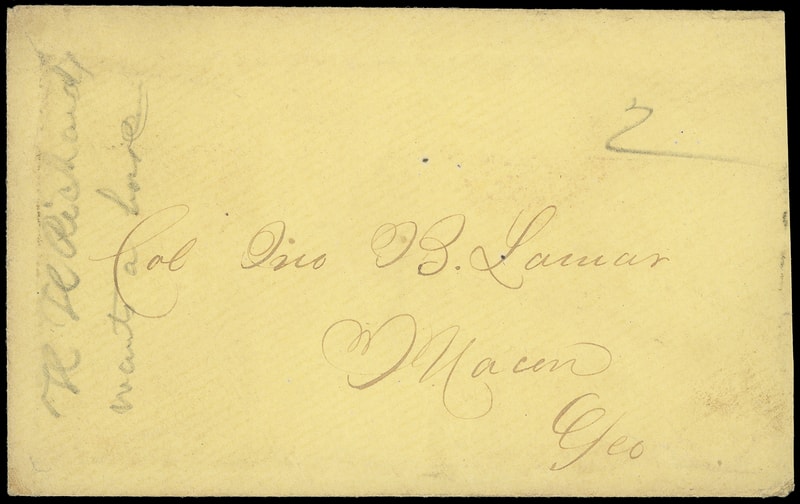 Col Jno B. Lamar
Macon
Geo
2
H H Richards
wants a horse